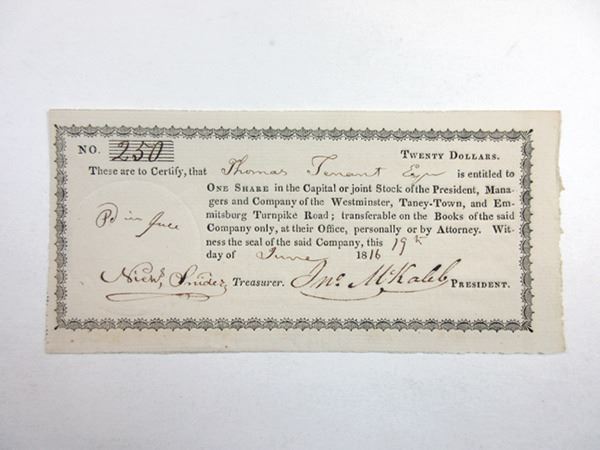 NO. 250
TWENTY DOLLARS.
These are to Certify, that Thomas Tenant Esqr is entitled to
ONE SHARE in the Capital or joint Stock of the President, Mana-
gers and Company of the Westminster, Taney-Town, and Em-
mitsburg Turnpike Road; transferable on the Books of the said
Company only, at their Office, personally or by Attorney. Wit-
ness the seal of the said Company, this 19th
day of June 1816
Pd in full
Nichs. Snider Treasurer. Jno. McKaleb PRESIDENT.